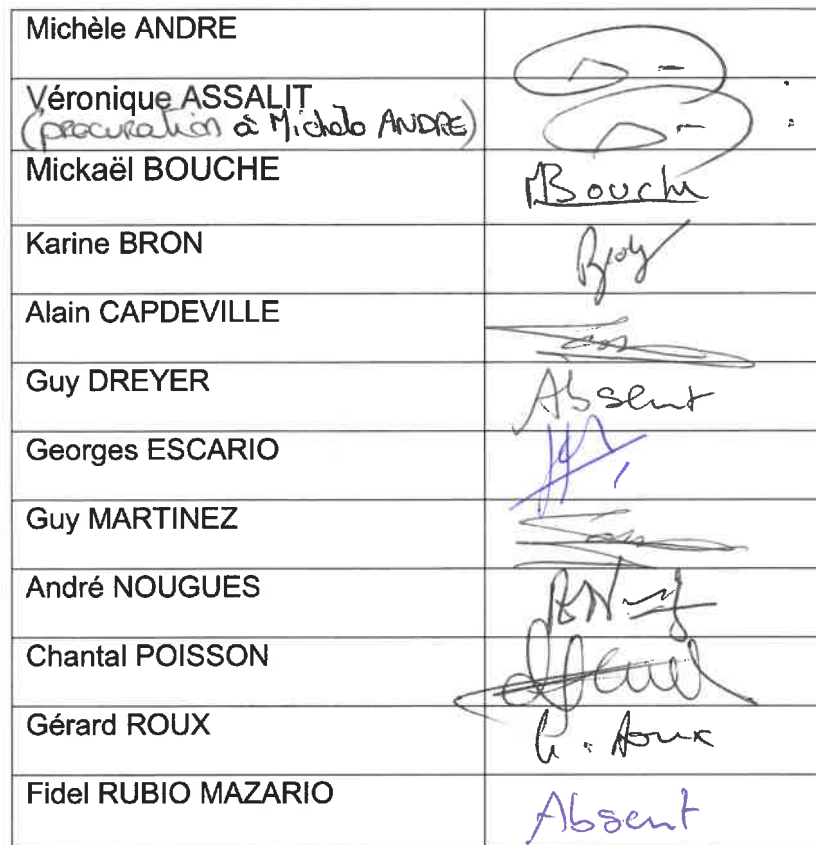 Michèle ANDRE
Véronique ASSALIT
(procuration à Michele ANDRE)
Mickaël BOUCHE
MBouche
Karine BRON
Alain CAPDEVILLE
Guy DREYER
Absent
Georges ESCARIO
Guy MARTINEZ
André NOUGUES
Chantal POISSON
Gérard ROUX
G. Roux
Fidel RUBIO MAZARIO
Absent